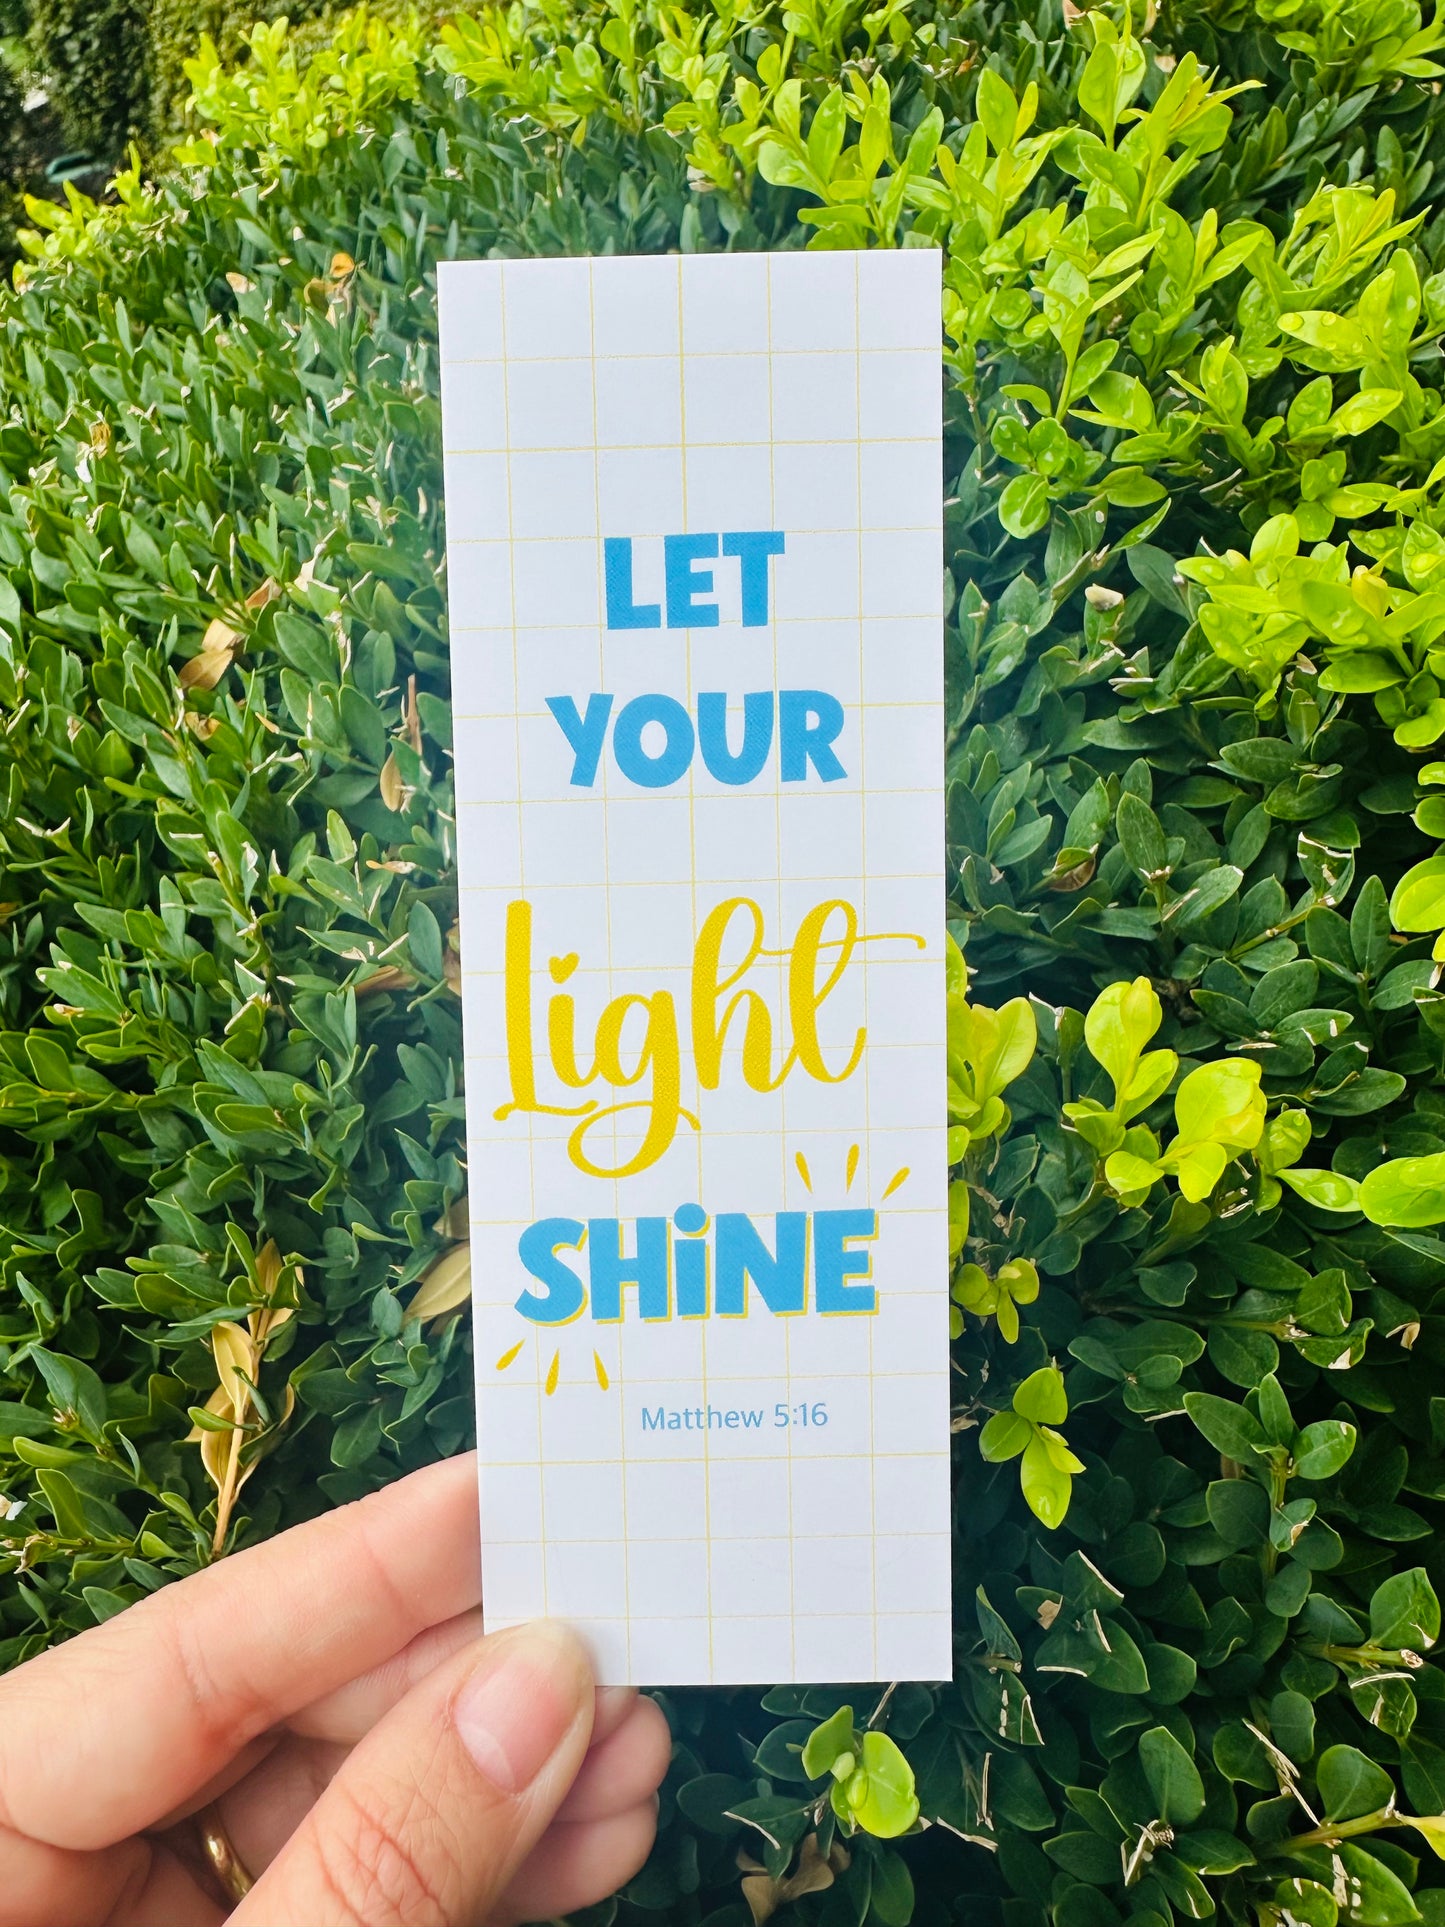 LET
YOUR
Light
SHiNE
Matthew 5:16